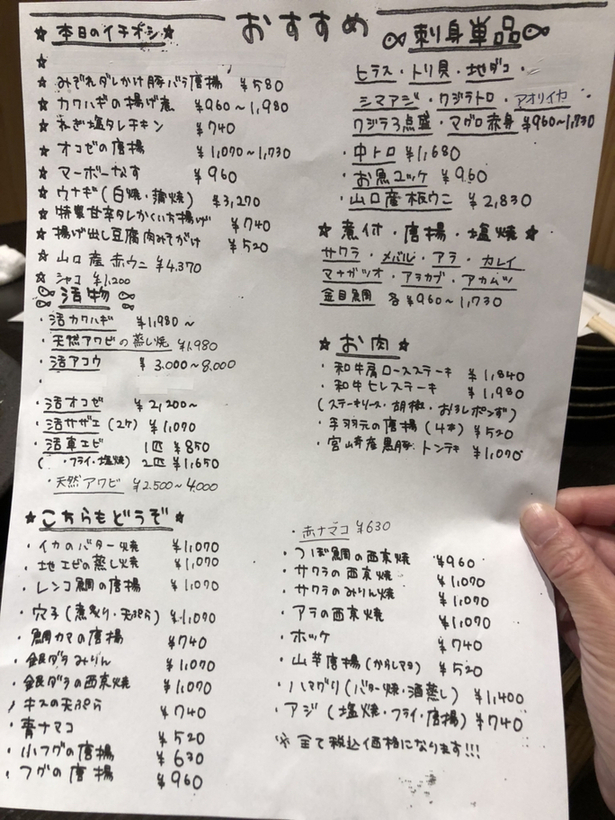 おすすめ
☆ 本日のイチオシ ☆
☆
☆ みぞれダレかけ豚バラ唐揚 ¥580
☆ カワハギの揚げ煮 ¥960～1,980
☆ ねぎ塩タレチキン ¥740
☆ オコゼの唐揚 ¥1,070～1,730
☆ マーボーなす ¥960
☆ ウナギ(白焼・蒲焼) ¥3,270
☆ 特製甘辛タレかくい方揚げ ¥740
☆ 揚げ出し豆腐肉みそがけ ¥520
☆ 山口産 赤ウニ ¥4,370
☆ シャコ ¥1,200
活物
・活カワハギ ¥1,980～
・天然アワビの蒸し焼 ¥1,980
・活アコウ ¥3,000～8,000
・
・活オコゼ ¥2,200～
・活サザエ(2ケ) ¥1,070
・活車エビ 1匹 ¥850
(・フライ・塩焼) 2匹 ¥1,650
・天然アワビ ¥2,500～4,000
☆ こちらもどうぞ ☆
・イカのバター焼 ¥1,070
・地エビの蒸し焼 ¥1,070
・レンコ鯛の唐揚 ¥1,070
・穴子(煮炙り・天ぷら) ¥1,070
・鯛カマの唐揚 ¥740
・銀ダラみりん ¥1,070
・銀ダラの西京焼 ¥1,070
・キスの天ぷら ¥740
・青ナマコ ¥520
・小フグの唐揚 ¥630
・フグの唐揚 ¥960
刺身単品
ヒラス・トリ貝・地ダコ・
シマアジ・クジラトロ・アオリイカ
クジラ3点盛・マグロ赤身 ¥960～1,730
・中トロ ¥1,680
・お魚ユッケ ¥960
・山口産板ウニ ¥2,830
☆ 煮付・唐揚・塩焼 ☆
サワラ・メバル・アラ・カレイ
マナガツオ・アラカブ・アカムツ
金目鯛 各¥960～1,730
☆ お肉 ☆
・和牛肩ロースステーキ ¥1,840
・和牛ヒレステーキ ¥1,980
(ステーキソース・胡椒・おろしポンず)
・手羽元の唐揚(4本) ¥520
・宮崎産黒豚トンテキ ¥1,070
・赤ナマコ ¥630
・つぼ鯛の西京焼 ¥960
・サワラの西京焼 ¥1,070
・サワラのみりん焼 ¥1,070
・アラの西京焼 ¥1,070
・ホッケ ¥740
・山芋唐揚(からしマヨ) ¥520
・ハマグリ(バター焼・酒蒸し) ¥1,400
・アジ(塩焼・フライ・唐揚) ¥740
※全て税込価格になります!!!